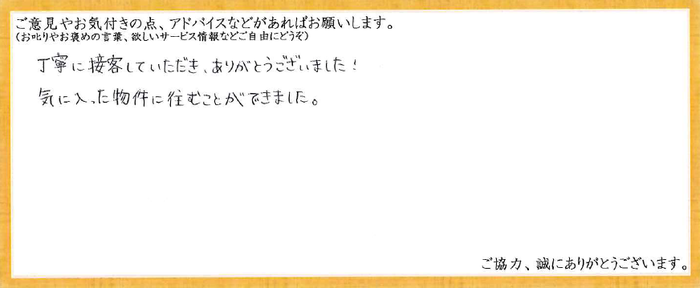 ご意見やお気付きの点、アドバイスなどがあればお願いします。
(お叱りやお褒めの言葉、欲しいサービス情報などご自由にどうぞ)
丁寧に接客していただき、ありがとうございました!
気に入った物件に住むことができました。
ご協力、誠にありがとうございます。